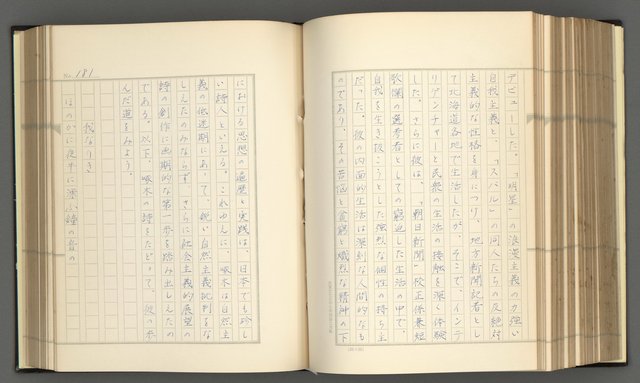 デビューした。「明星」の浪漫主義の力強い
自我主義と、「スバル」の同人たちの反絶対
主義的な性格を身につけ、地方新聞記者とし
て北海道各地で生活したが、そこで、インテ
リゲンチャーと民衆の生活の接触を深く体験
した。さらに彼は、「朝日新聞」校正係兼短
歌欄の選者としての窮迫した生活の中で、
自我を生き抜こうとした強烈な個性の持ち主
だった。彼の内面的生活は深刻な人間的なも
のであり、その苦悩と貧窮と熾烈な精神の下
No. 181
における思想の遍歴と実践は、日本でも珍し
い詩人といえる。これゆえに、啄木は自然主
義の低迷期にあって、鋭い自然主義批判をな
しえたのみならず、さらに社会主義的展望の
詩の創作に画期的な第一歩を踏み出しえたの
である。以下、啄木の詩をたどって、彼の歩
んだ道をみよう。
我なりき
ほのかに夜半に漂ふ鐘の音の